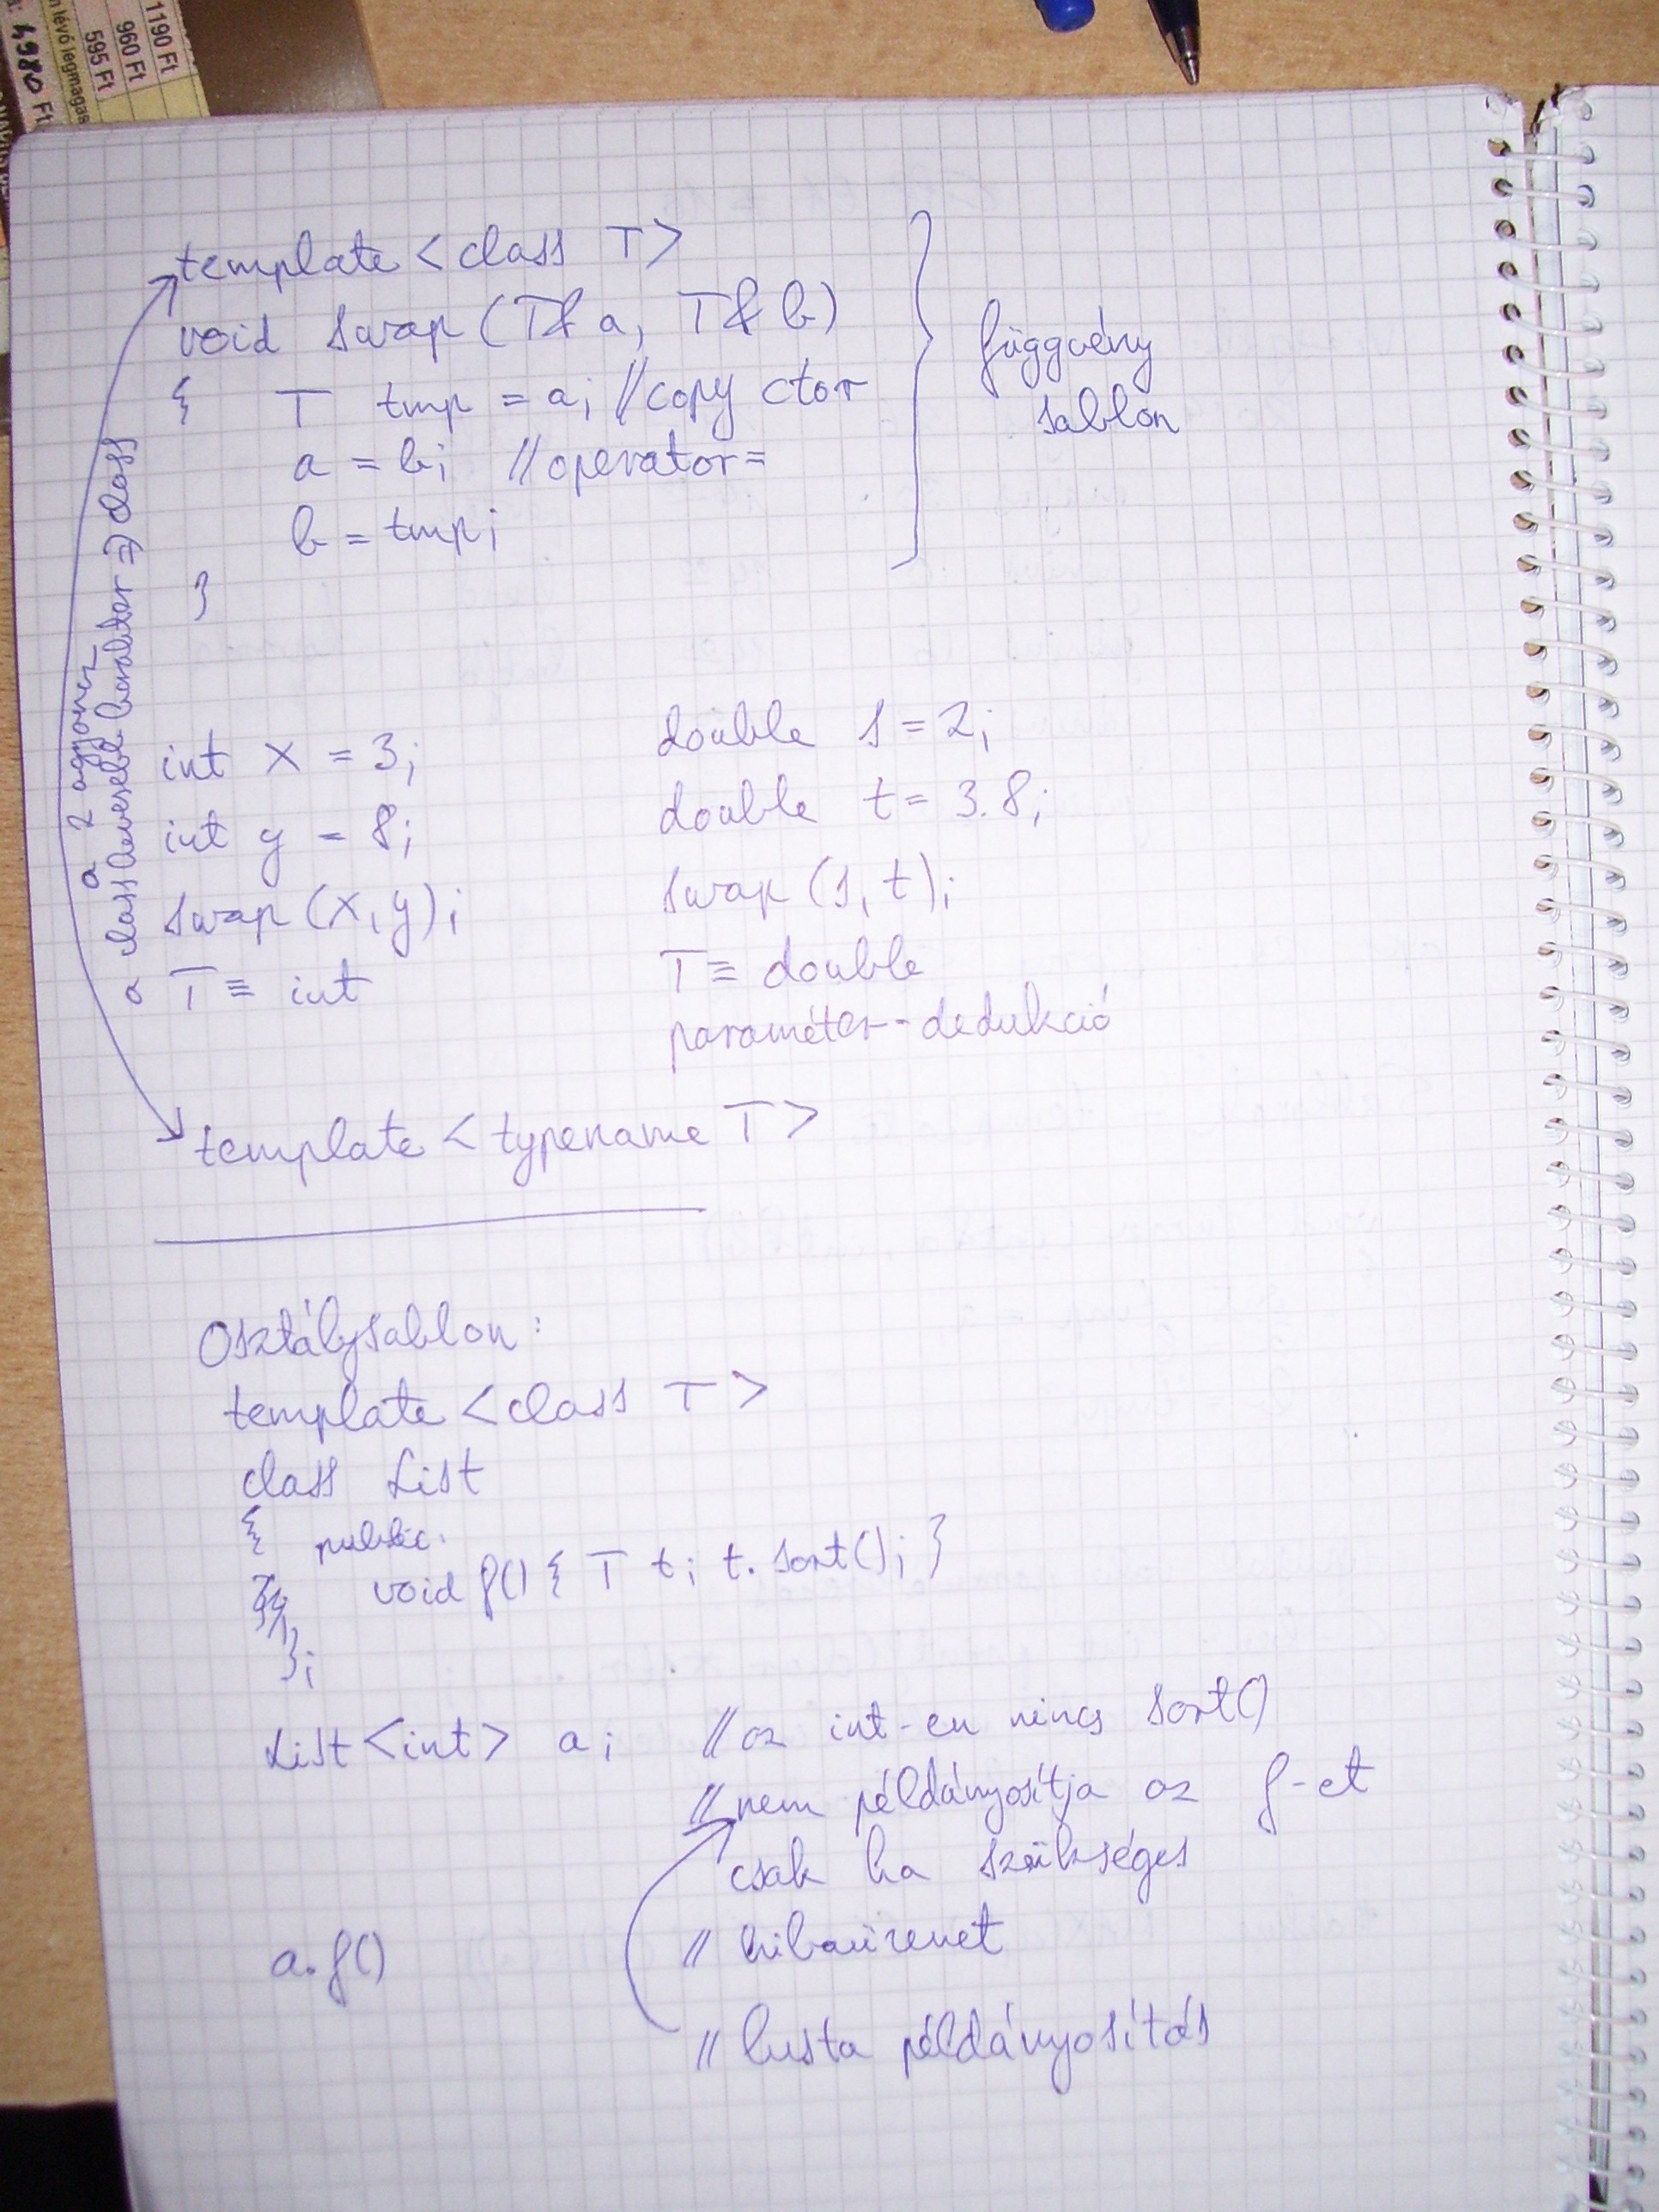 1190 Ft
960 Ft
595 Ft
n lévő legmagas
4980 Ft
template <class T>
void swap (T& a, T& b)
{ T tmp = a; //copy ctor
a = b; //operator=
b = tmp;
}
függvény
sablon
a 2 ugyanaz
a class kevesebb karakter => class
int x = 3;
int y = 8;
swap (x, y);
T ≡ int
double s = 2;
double t = 3.8;
swap (s, t);
T ≡ double
paraméter-dedukció
template <typename T>
Osztálysablon:
template <class T>
class List
{ public:
void f() { T t; t.sort(); }
};
List <int> a; //az int-en nincs sort()
//nem példányosítja az f-et
csak ha szükséges
a.f() // hibaüzenet
// lusta példányosítás